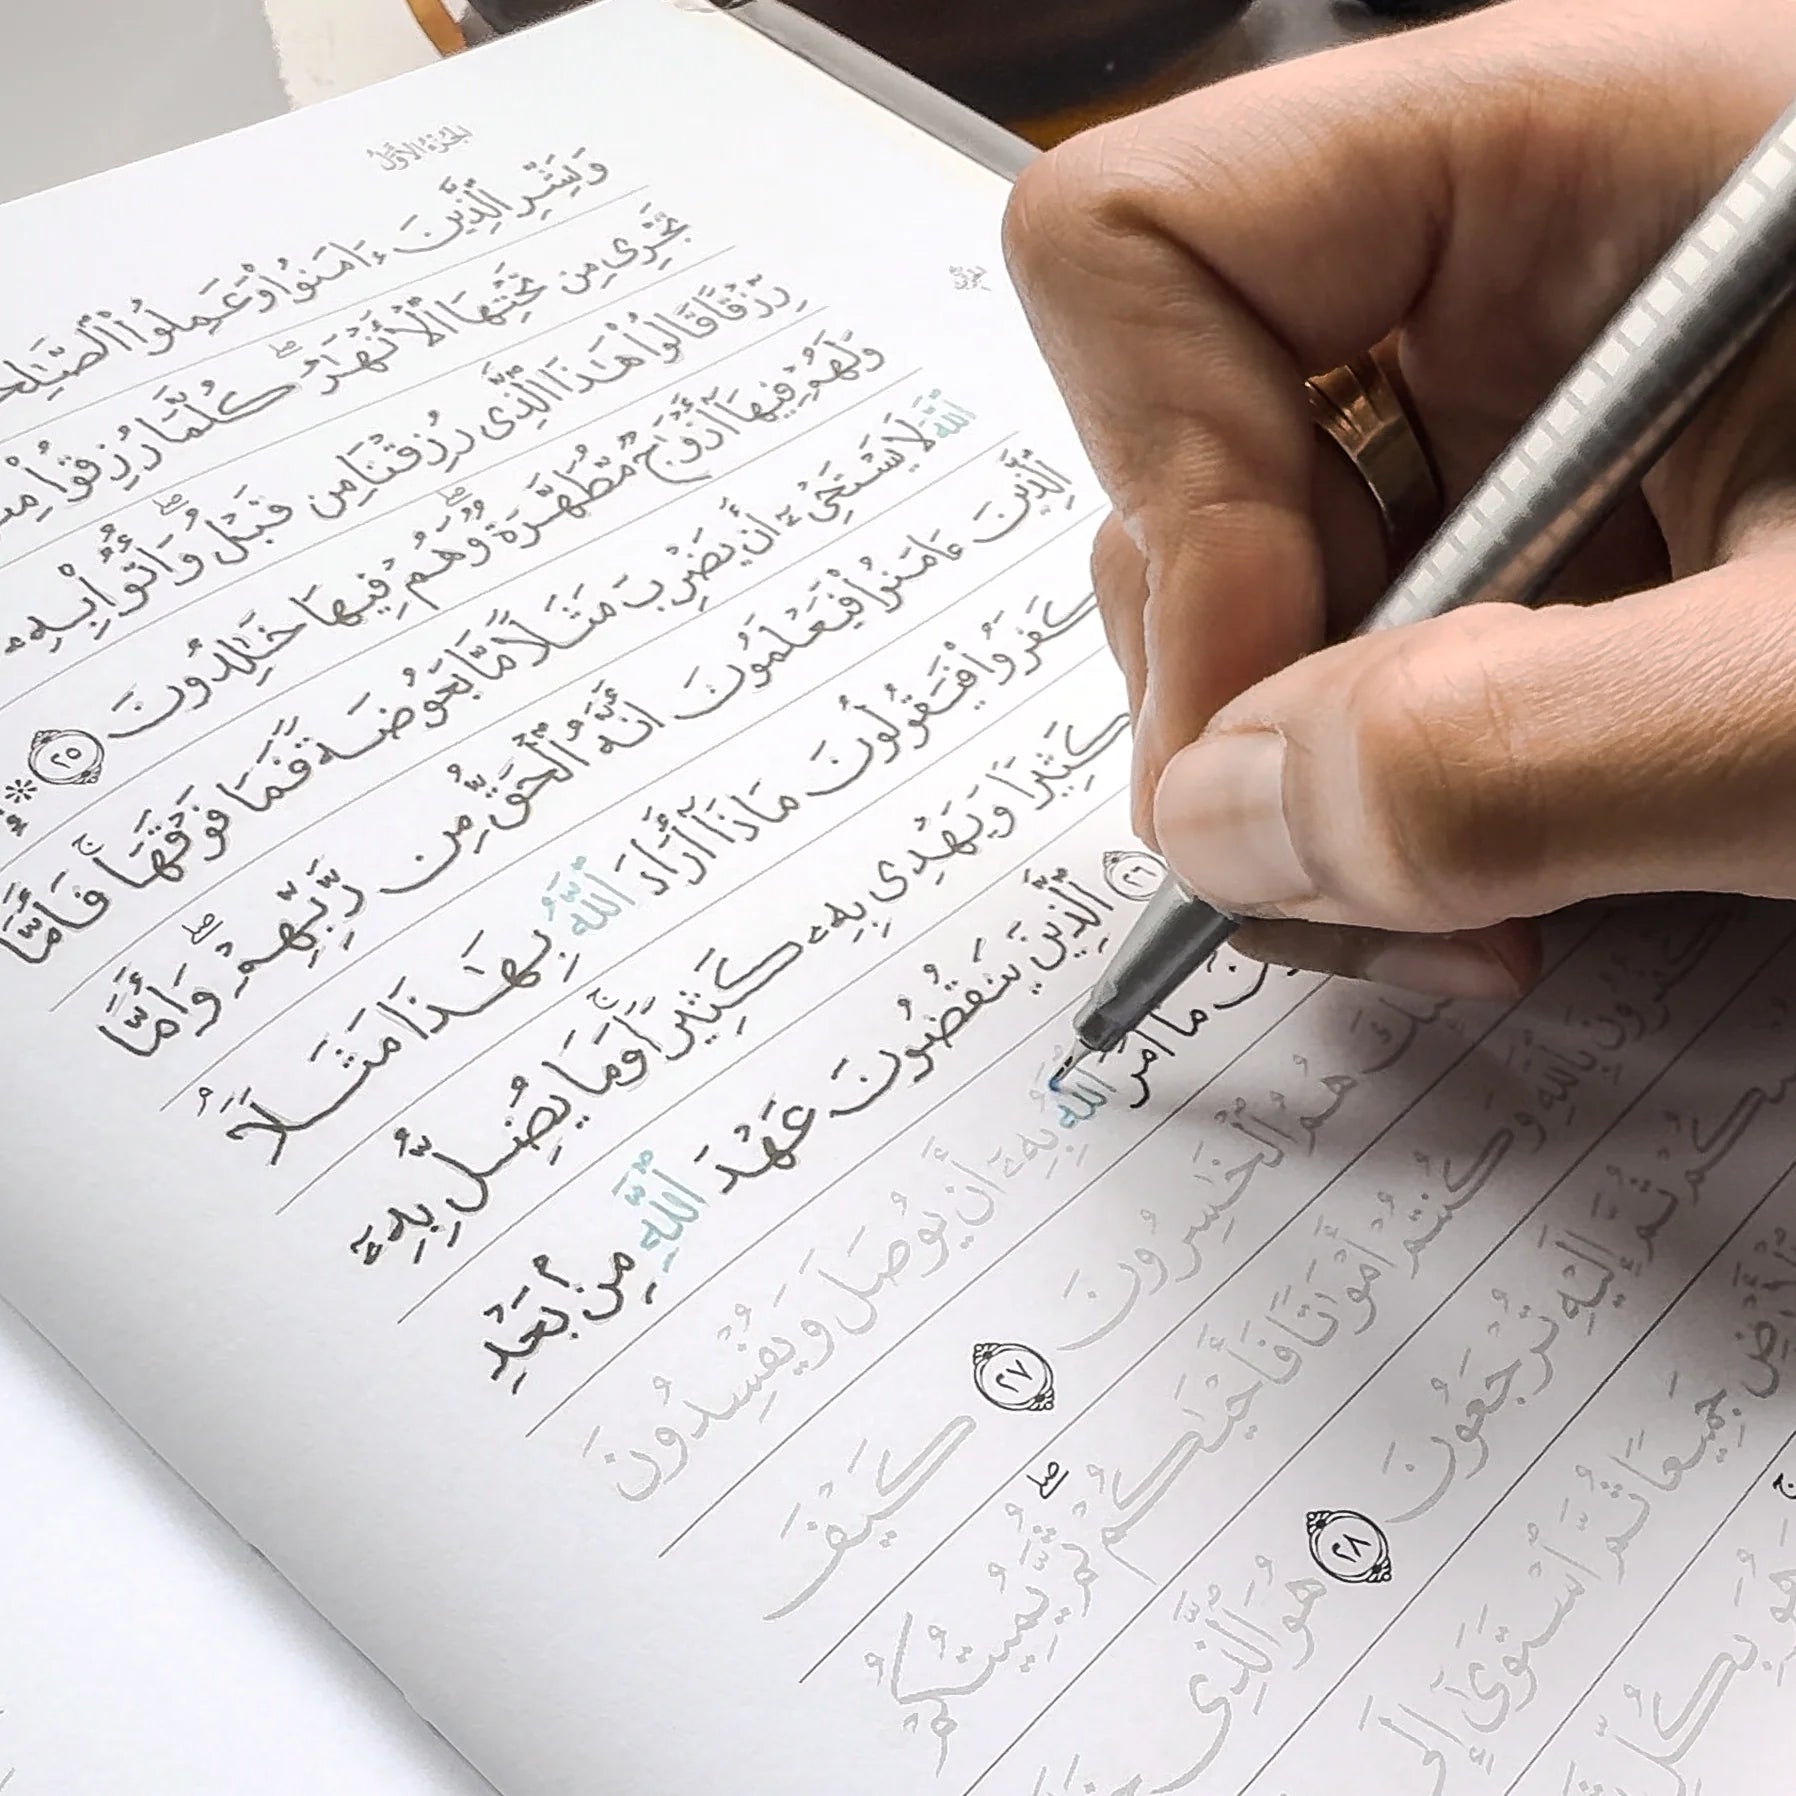 الجزء الأول
وَبَشِّرِ ٱلَّذِينَ ءَامَنُوا۟ وَعَمِلُوا۟
تَجْرِى مِن تَحْتِهَا ٱلْأَنْهَـٰرُ ۖ كُلَّمَا رُزِقُوا۟
رِّزْقًا قَالُوا۟ هَـٰذَا ٱلَّذِى رُزِقْنَا مِن قَبْلُ ۖ وَأُتُوا۟ بِهِۦ
وَلَهُمْ فِيهَآ أَزْوَٰجٌ مُّطَهَّرَةٌ ۖ وَهُمْ فِيهَا خَـٰلِدُونَ ٢٥
ٱللَّهَ لَا يَسْتَحْىِۦٓ أَن يَضْرِبَ مَثَلًا مَّا بَعُوضَةً فَمَا فَوْقَهَا ۚ فَأَمَّا
ٱلَّذِينَ ءَامَنُوا۟ فَيَعْلَمُونَ أَنَّهُ ٱلْحَقُّ مِن رَّبِّهِمْ ۖ وَأَمَّا
كَفَرُوا۟ فَيَقُولُونَ مَاذَآ أَرَادَ ٱللَّهُ بِهَـٰذَا مَثَلًا ۘ
كَثِيرًا وَيَهْدِى بِهِۦ كَثِيرًا ۚ وَمَا يُضِلُّ بِهِۦٓ
٢٦ ٱلَّذِينَ يَنقُضُونَ عَهْدَ ٱللَّهِ مِنۢ بَعْدِ
مَآ أَمَرَ ٱللَّهُ بِهِۦٓ أَن يُوصَلَ وَيُفْسِدُونَ
هُمُ ٱلْخَـٰسِرُونَ ٢٧ كَيْفَ
بِٱللَّهِ وَكُنتُمْ أَمْوَٰتًا فَأَحْيَـٰكُمْ ۖ ثُمَّ يُمِيتُكُمْ
ثُمَّ إِلَيْهِ تُرْجَعُونَ ٢٨ هُوَ ٱلَّذِى
جَمِيعًا ثُمَّ ٱسْتَوَىٰٓ إِلَى
وَهُوَ بِكُلِّ